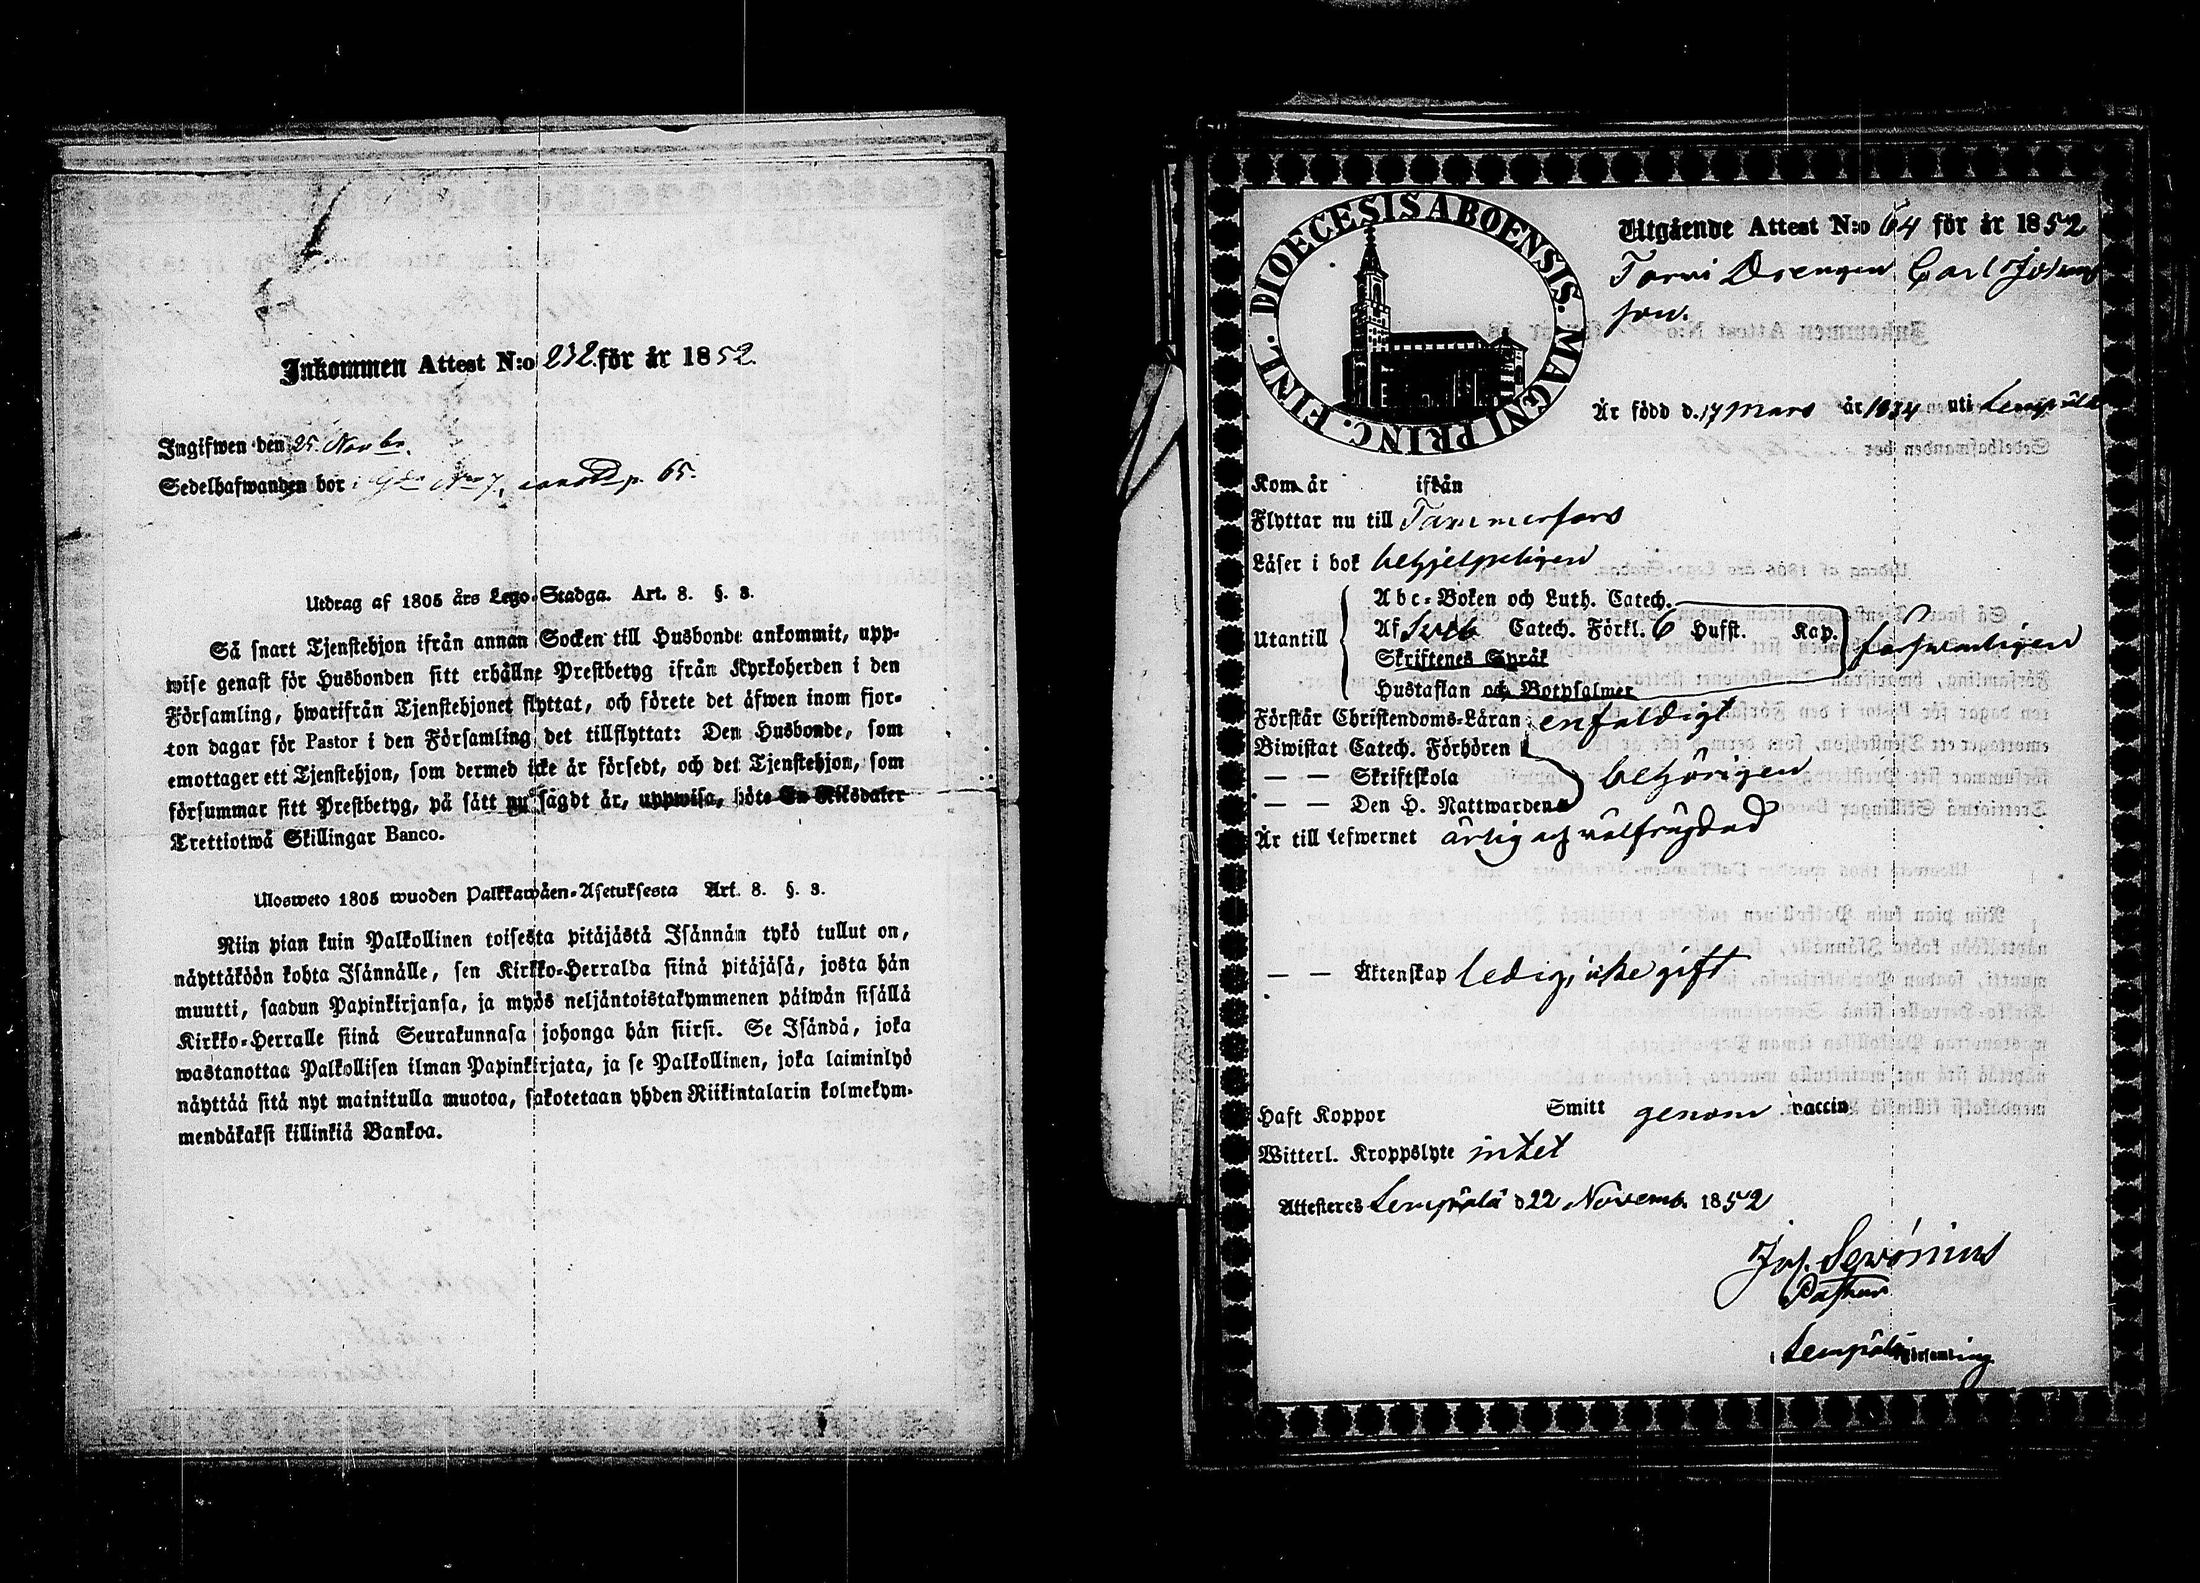 Inkommen Attest N:o 232. för år 1852.
Ingifwen den 25 Novbr.
Sedelhafwanden bor p. 65.
Utdrag af 1805 års Lego-Stadga. Art. 8. §. 3.
Så snart Tjenstehjon ifrån annan Socken till Husbonde ankommit, upp-
wise genast för Husbonden sitt erhållne Prestbetyg ifrån Kyrkoherden i den
Församling, hwarifrån Tjenstehjonet flyttat, och förete det äfwen inom fjor-
ton dagar för Pastor i den Församling det tillflyttat: Den Husbonde, som
emottager ett Tjenstehjon, som dermed icke är försedt, och det Tjenstehjon, som
försummar sitt Prestbetyg, på sätt nu sagdt är, uppwisa, böte En Riksdaler
Trettiotwå Skillingar Banco.
Ulosweto 1805 wuoden Palkkawäen-Asetuksesta Art. 8. §. 3.
Niin pian kuin Palkollinen toisesta pitäjästä Isännän tykö tullut on,
näyttäköön kohta Isännälle, sen Kirkko-Herralda siinä pitäjäsä, josta hän
muutti, saadun Papinkirjansa, ja myös neljäntoistakymmenen päiwän sisällä
Kirkko-Herralle siinä Seurakunnasa johonga hän siirsi. Se Isändä, joka
wastanottaa Palkollisen ilman Papinkirjata, ja se Palkollinen, joka laiminlyö
näyttää sitä nyt mainitulla muotoa, sakotetaan yhden Riikintalarin kolmekym-
mendäkaksi killinkiä Bankoa.
DIOECESIS ABOENSIS. MAGNI PRINC. FINL.
Utgående Attest N:o 64 för år 1852
Drengen Carl Johans
son.
Är född d. 17 Mars år 1834 uti Lempälä
Kom år ifrån
Flyttar nu till Tammerfors
Läser i bok behjelpeligen
Utantill
Abc-Boken och Luth. Catech.
Af Svib Catech. Förkl. 6 Husst. Kap.
Skriftenes Språk
Hustaflan och Botpsalmer
försvarligen
Förstår Christendoms-Läran enfaldigt
Biwistat Catech. Förhören
— — Skriftskola behörigen
— — Den H. Nattwarden
Är till lefwernet ärlig och välfrägdad
— — Äktenskap ledig, icke gift
Haft Koppor Smitt genom vaccin
Witterl. Kroppslyte intet
Attesteres Lempälä d 22 Novemb. 1852
Jos. Serónius
Pastor
i Lempälä Församling